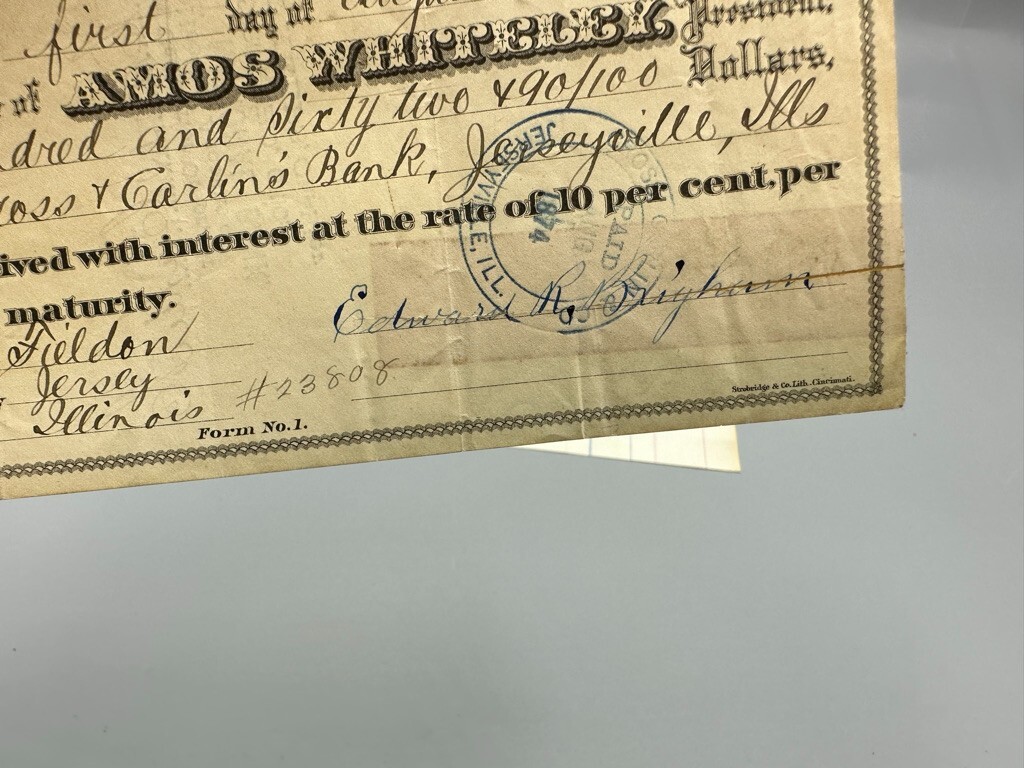 first day of
of AMOS WHITELEY President,
dred and Sixty two & 90/100 Dollars,
ross & Carlin's Bank, Jerseyville, Ills
ived with interest at the rate of 10 per cent, per
maturity.
Edward R. Brigham
Fieldon
Jersey
Illinois #23808
Form No. 1.
Strobridge & Co. Lith. Cincinnati.
PAID
AUG
1874
JERSEYVILLE, ILL.